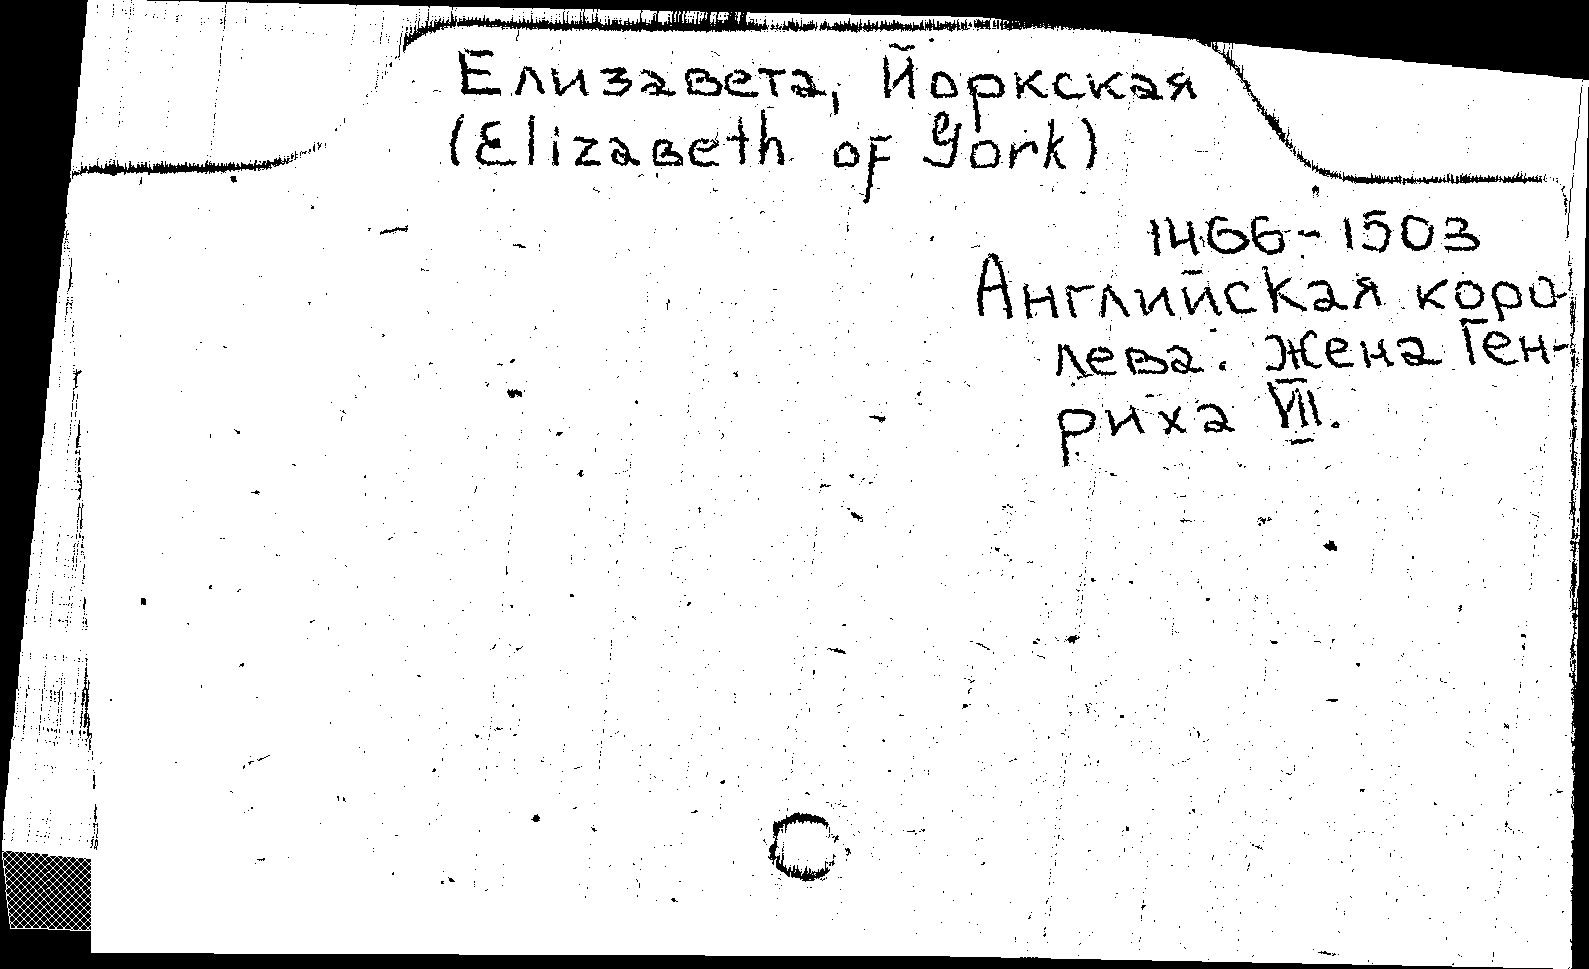 Елизавета, Йоркская
(Elizabeth of York)
1466-1503
Английская коро-
лева. Жена Ген-
риха VII.